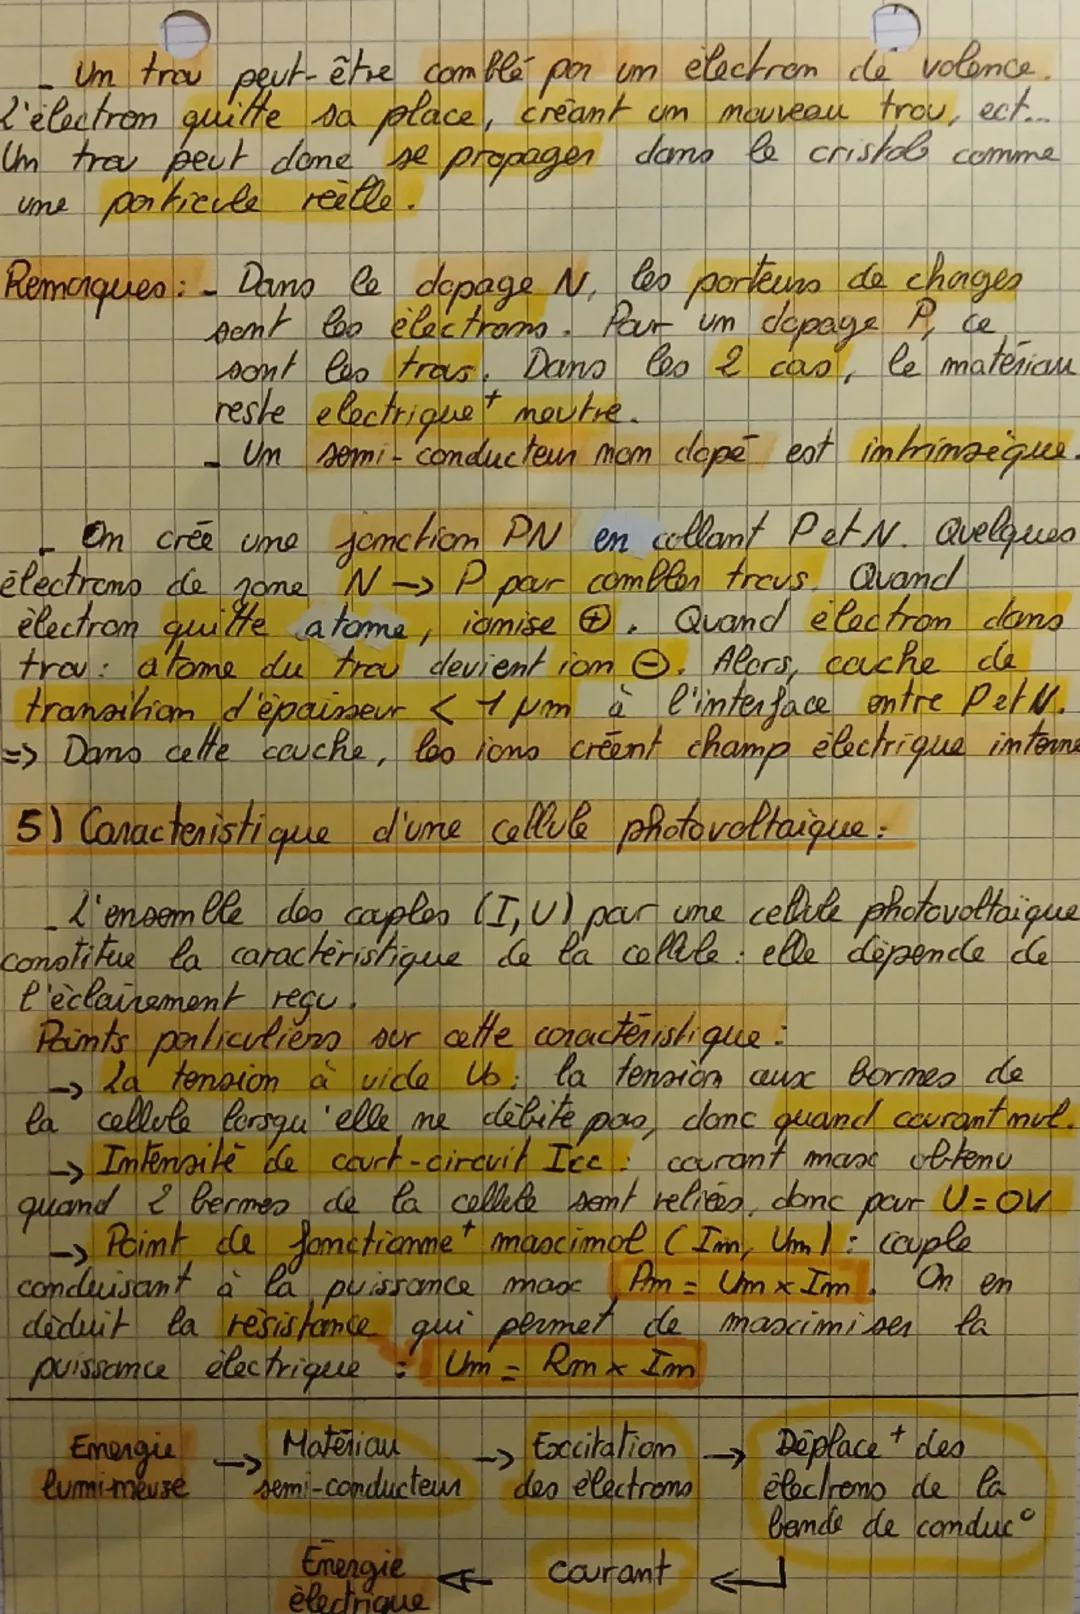 - Un trou peut-être comblé par un électron de valence.
L'électron quitte sa place, créant un nouveau trou, ect...
Un trou peut donc se propager dans le cristal comme
une particule réelle.
Remarques : - Dans le dopage N, les porteurs de charges
sont les électrons. Pour un dopage P, ce
sont les trous. Dans les 2 cas, le matériau
reste electrique+ neutre.
- Un semi-conducteur non dopé est intrinsèque.
- On crée une jonction PN en collant P et N. Quelques
électrons de zone N -> P pour combler trous. Quand
électron quitte atome, ionise ⊕. Quand électron dans
trou : atome du trou devient ion ⊖. Alors, couche de
transition d'épaisseur < 1 µm à l'interface entre P et N.
=> Dans cette couche, les ions créent champ électrique interne
5) Caractéristique d'une cellule photovoltaïque :
- L'ensemble des couples (I, U) pour une cellule photovoltaïque
constitue la caractéristique de la cellule : elle dépende de
l'éclairement reçu.
Points particuliers sur cette caractéristique :
-> La tension à vide U0 : la tension aux bornes de
la cellule lorsqu'elle ne débite pas, donc quand courant nul.
-> Intensité de court-circuit Icc : courant max obtenu
quand 2 bornes de la cellule sont reliées, donc pour U = 0V
-> Point de fonctionne+ maximal (Im, Um) : couple
conduisant à la puissance max Pm = Um x Im. On en
déduit la résistance qui permet de maximiser la
puissance électrique : Um = Rm x Im
Energie lumineuse -> Matériau semi-conducteur -> Excitation des électrons -> Déplace+ des électrons de la bande de conduc°
Énergie électrique <- courant <-